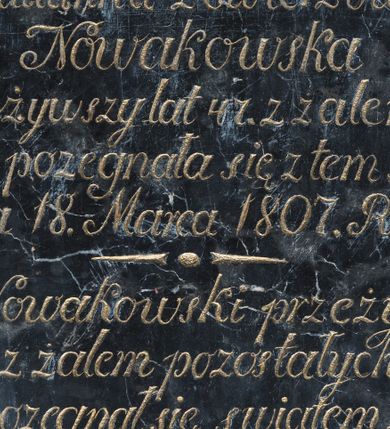 Nowakowska
żywszy lat 41. z żalem
pożegnała się z tem
18. Marca 1807. R
Nowakowski przeży
z żalem pozostałych
pożegnał się światem